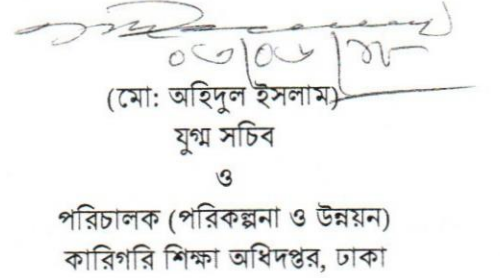 (মো: অহিদুল ইসলাম)
যুগ্ম সচিব
ও
পরিচালক (পরিকল্পনা ও উন্নয়ন)
কারিগরি শিক্ষা অধিদপ্তর, ঢাকা